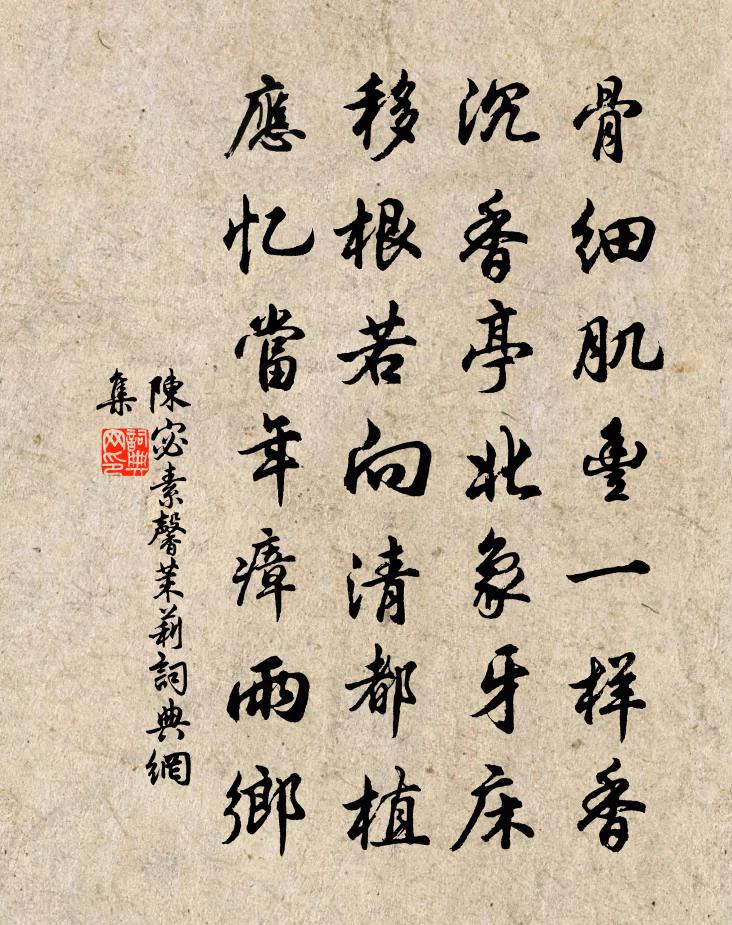 骨细肌豊一样香
沉香亭北象牙床
移根若向清都植
應忆當年瘴雨鄉
陳宓素馨茉莉詞典網
集
詞典
网印